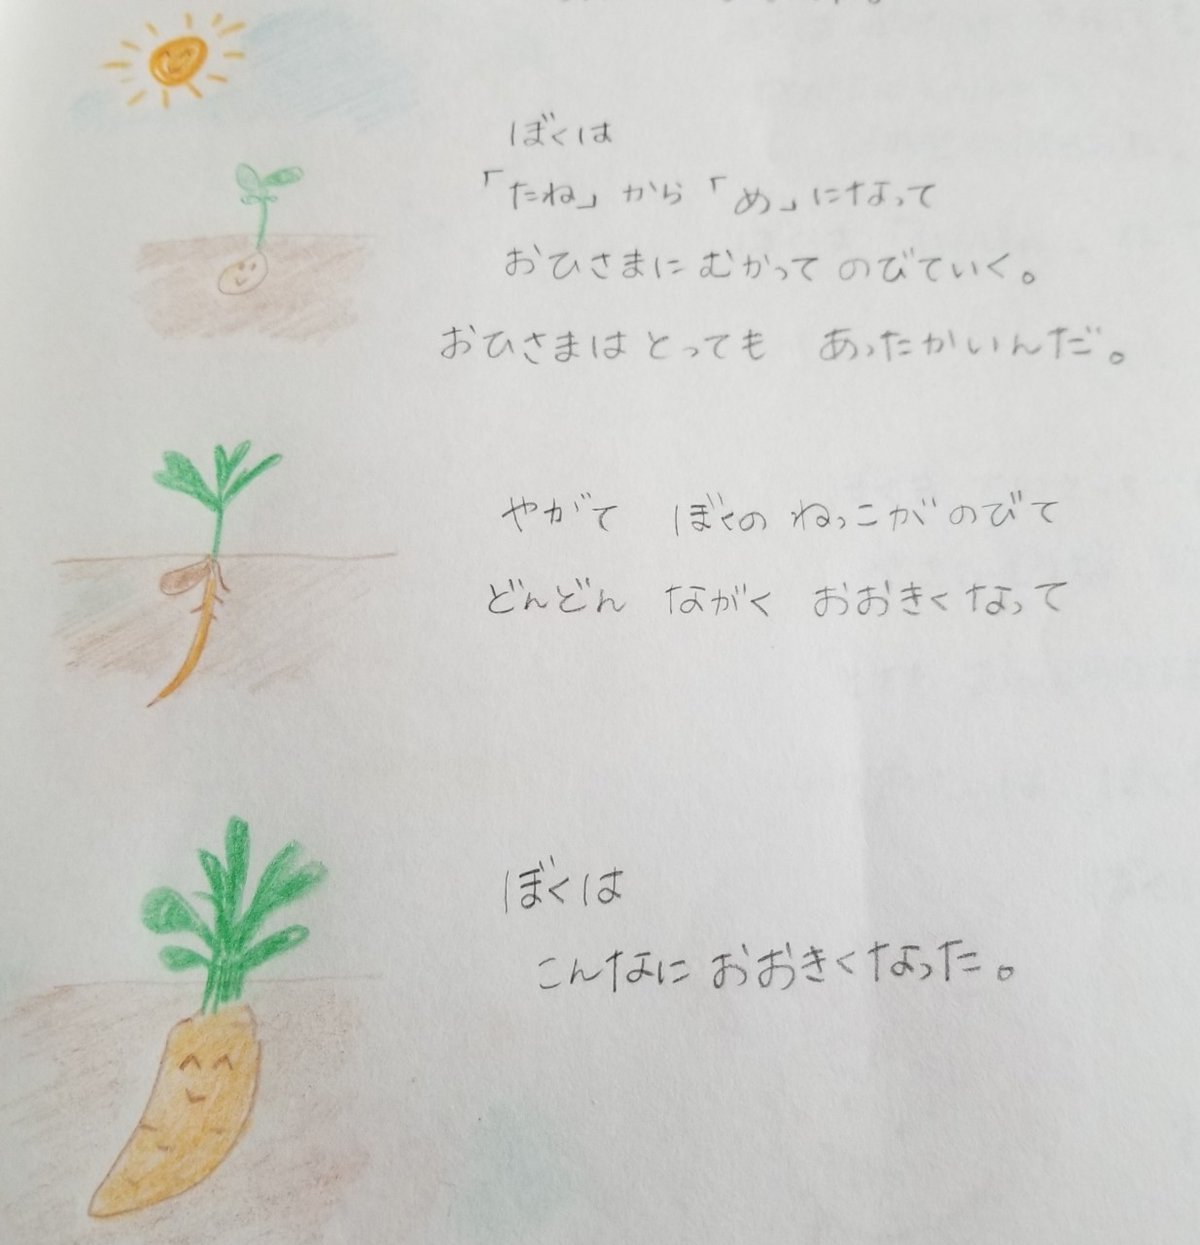 ぼくは
「たね」から「め」になって
おひさまに むかって のびていく。
おひさまは とっても あったかいんだ。
やがて ぼくの ねっこが のびて
どんどん ながく おおきく なって
ぼくは
こんなに おおきく なった。